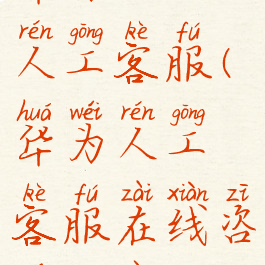 rén gōng kè fú
人工客服(
huá wéi rén gōng
华为人工
kè fú zài xiàn zī
客服在线咨